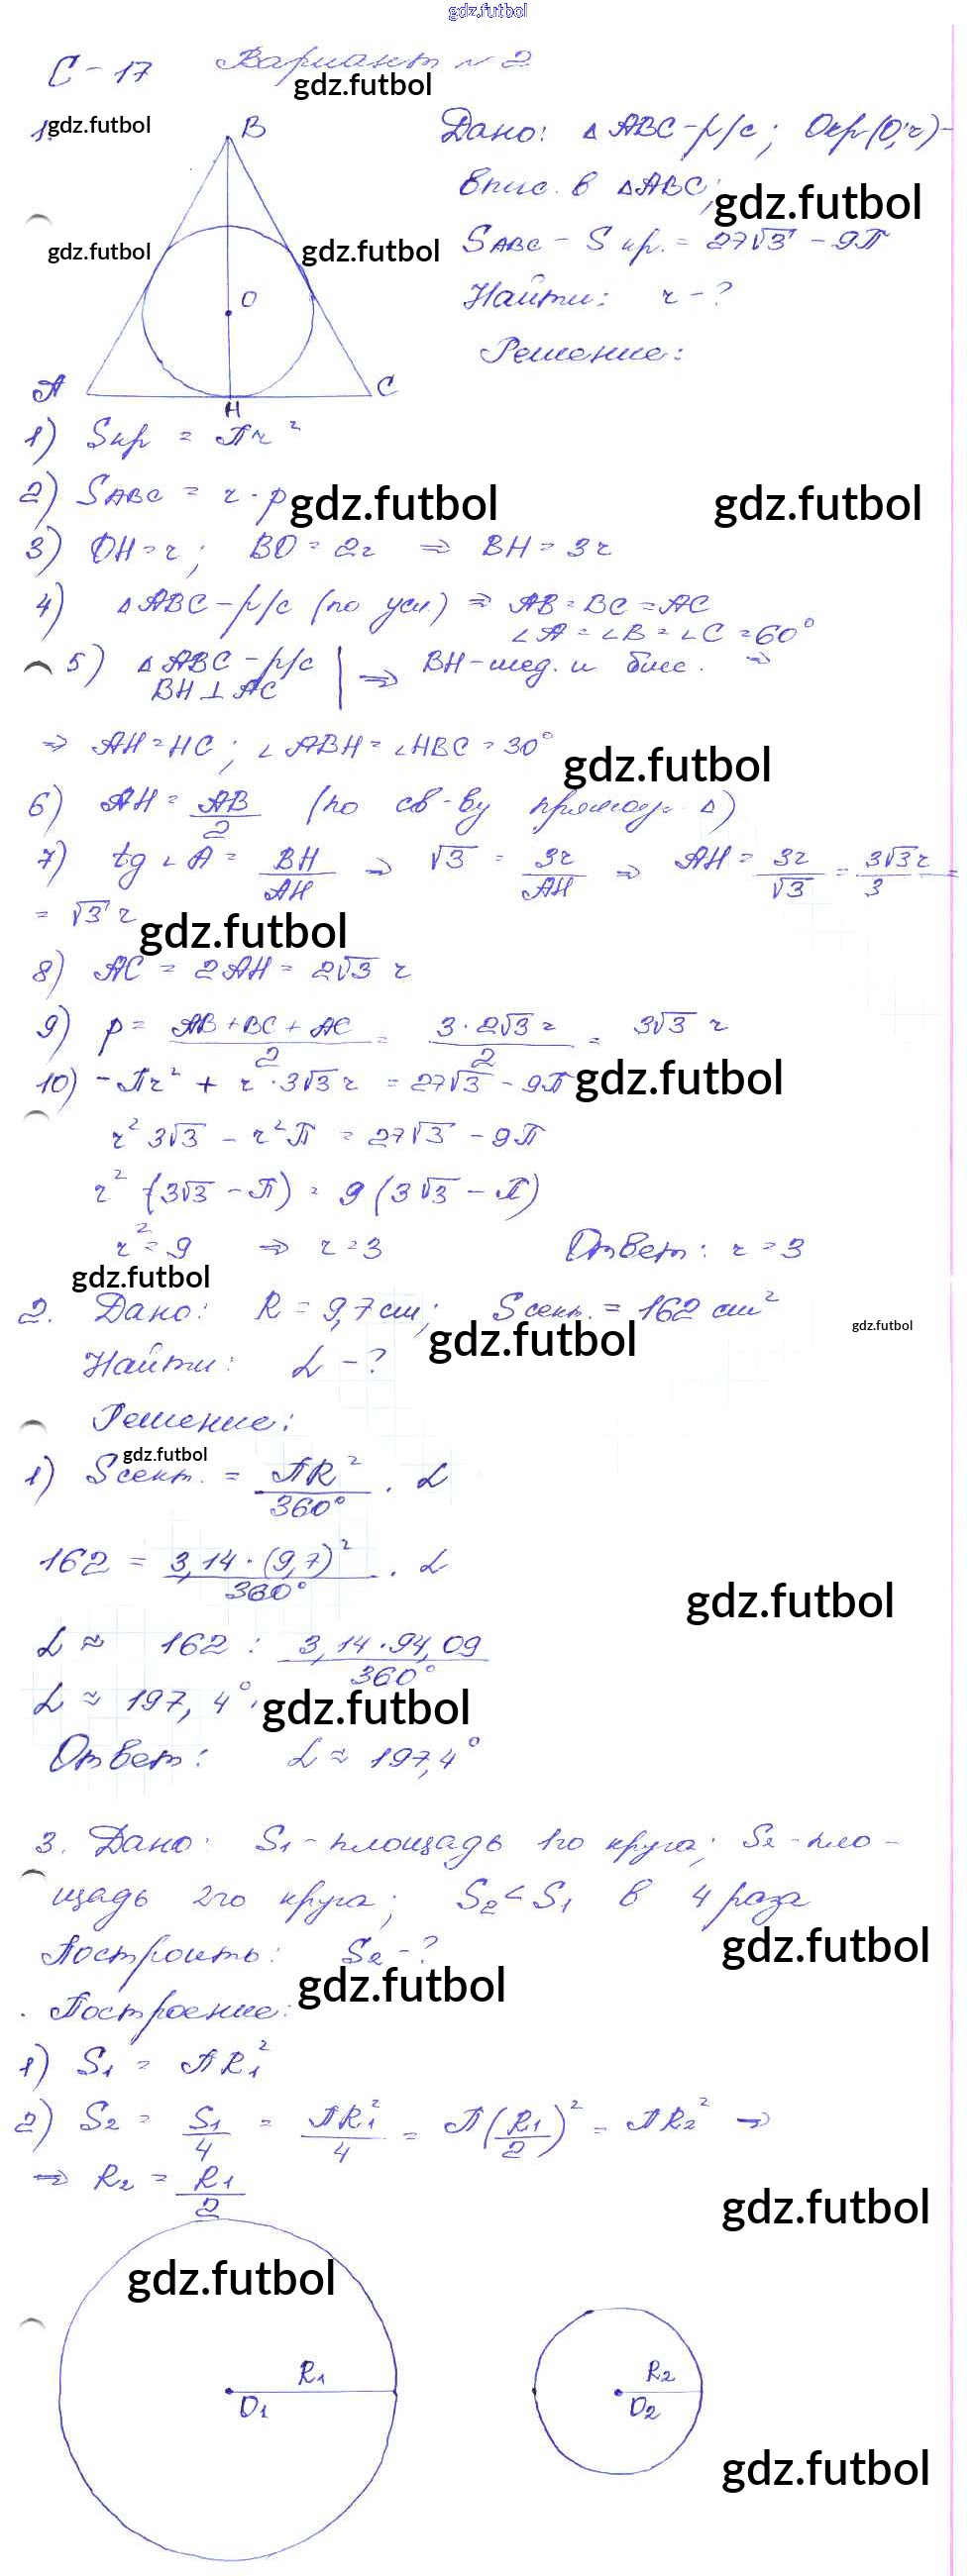 gdz.futbol
С-17 Вариант №2
gdz.futbol
1. gdz.futbol
B
Дано: △ABC-р/с; Окр(O;r)-
впис. в △ABC;
gdz.futbol
gdz.futbol gdz.futbol
S ABC - S кр. = 27√3 - 9П
O
Найти: r-?
Решение:
A H C
1) Sкр = Пr²
2) S ABC = r·p gdz.futbol gdz.futbol
3) OH=r; BO=2r ⇒ BH=3r
4) △ABC-р/с (по усл) ⇒ AB=BC=AC
∠A=∠B=∠C=60°
5) △ABC-р/с | ⇒ BH-мед. и бисс. ⇒
BH⊥AC
⇒ AH=HC; ∠ABH=∠HBC=30°
gdz.futbol
6) AH = AB/2 (по св-ву прямоуг. △)
7) tg∠A = BH/AH ⇒ √3 = 3r/AH ⇒ AH = 3r/√3 = 3√3r/3 =
= √3 r gdz.futbol
8) AC = 2AH = 2√3 r
9) p = AB+BC+AC/2 = 3·2√3r/2 = 3√3 r
10) -Пr² + r·3√3r = 27√3-9П gdz.futbol
r²3√3 - r²П = 27√3 - 9П
r²(3√3-П) = 9(3√3-П)
r²=9 ⇒ r=3 Ответ: r=3
gdz.futbol
2. Дано: R=9,7см; Sсект.=162 см²
gdz.futbol gdz.futbol
Найти: L-?
Решение:
gdz.futbol
1) Sсект. = ПR²/360° · L
162 = 3,14·(9,7)²/360° · L
gdz.futbol
L ≈ 162 : 3,14·94,09/360°
L ≈ 197,4°. gdz.futbol
Ответ: L ≈ 197,4°
3. Дано: S₁-площадь 1го круга; S₂-пло-
щадь 2го круга; S₂<S₁ в 4 раза
gdz.futbol
Построить: S₂-?
gdz.futbol
Построение:
1) S₁ = ПR₁²
2) S₂ = S₁/4 = ПR₁²/4 = П(R₁/2)² = ПR₂² ⇒
⇒ R₂ = R₁/2
gdz.futbol
gdz.futbol
R₁ R₂
O₁ O₂
gdz.futbol